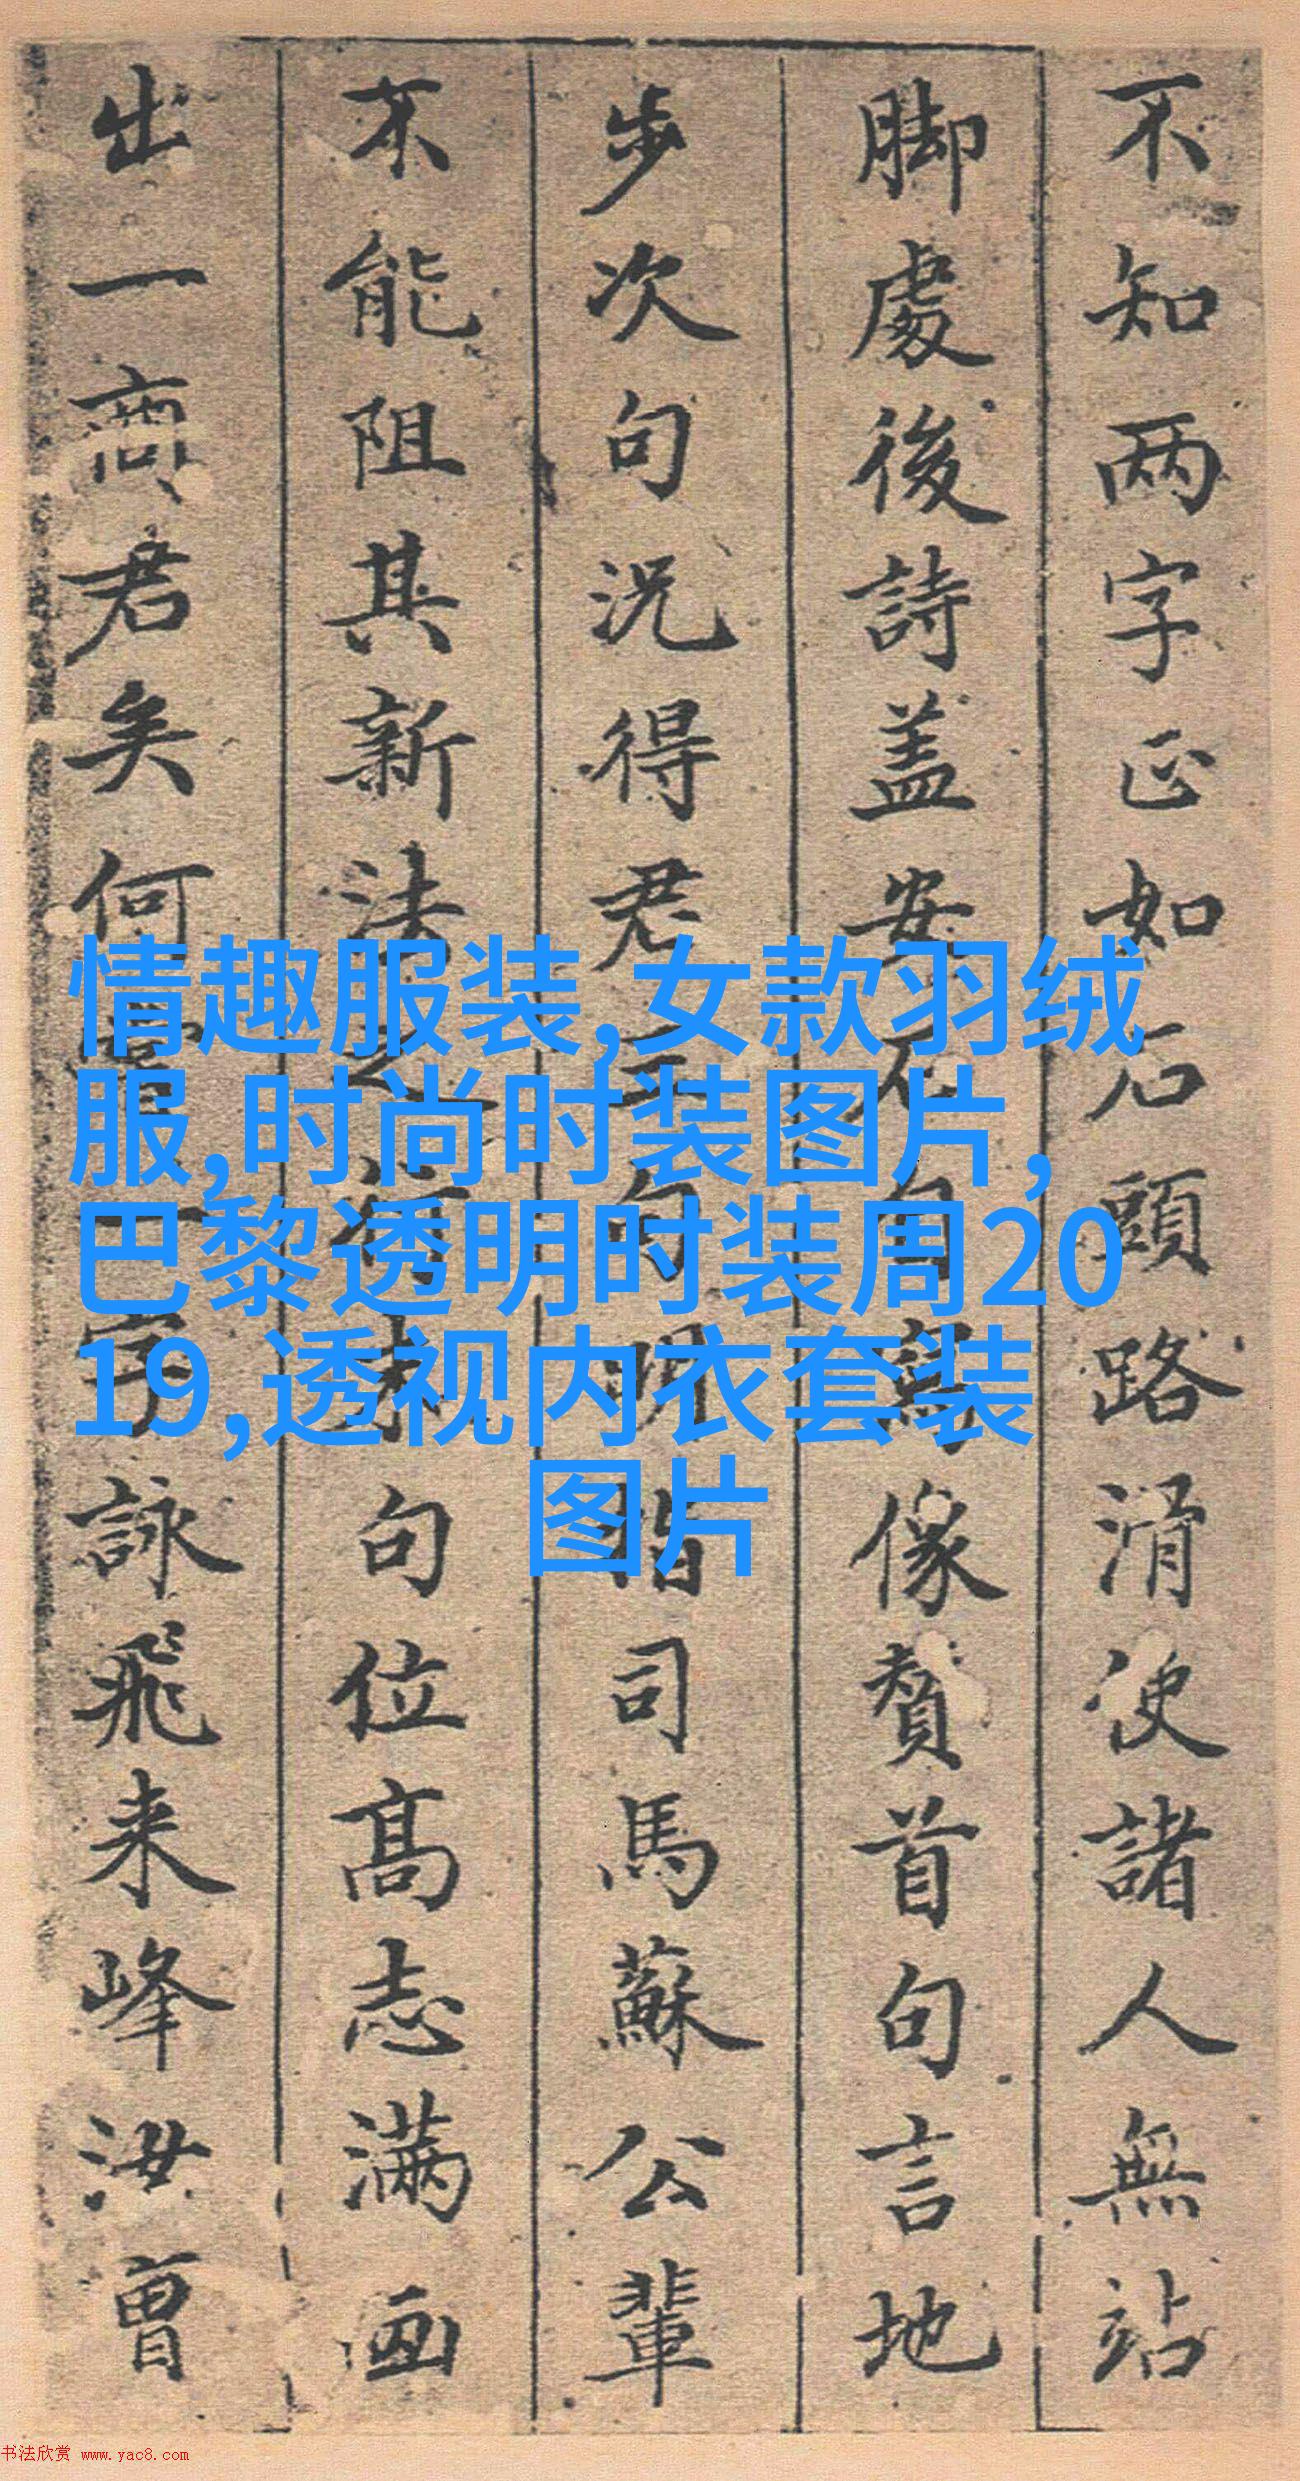 不知两字正如石頭路滑使諸人無站
脚處後詩盖安石自爲像贊首句言地
步次句況得君三句明指司馬蘇公輩
不能阻其新法之行末句位高志满画
出一商君矣何一字詠飛来峰汝曾
情趣服装,女款羽绒
服,时尚时装图片,
巴黎透明时装周20
19,透视内衣套装
图片
书法欣赏 www.yac8.com